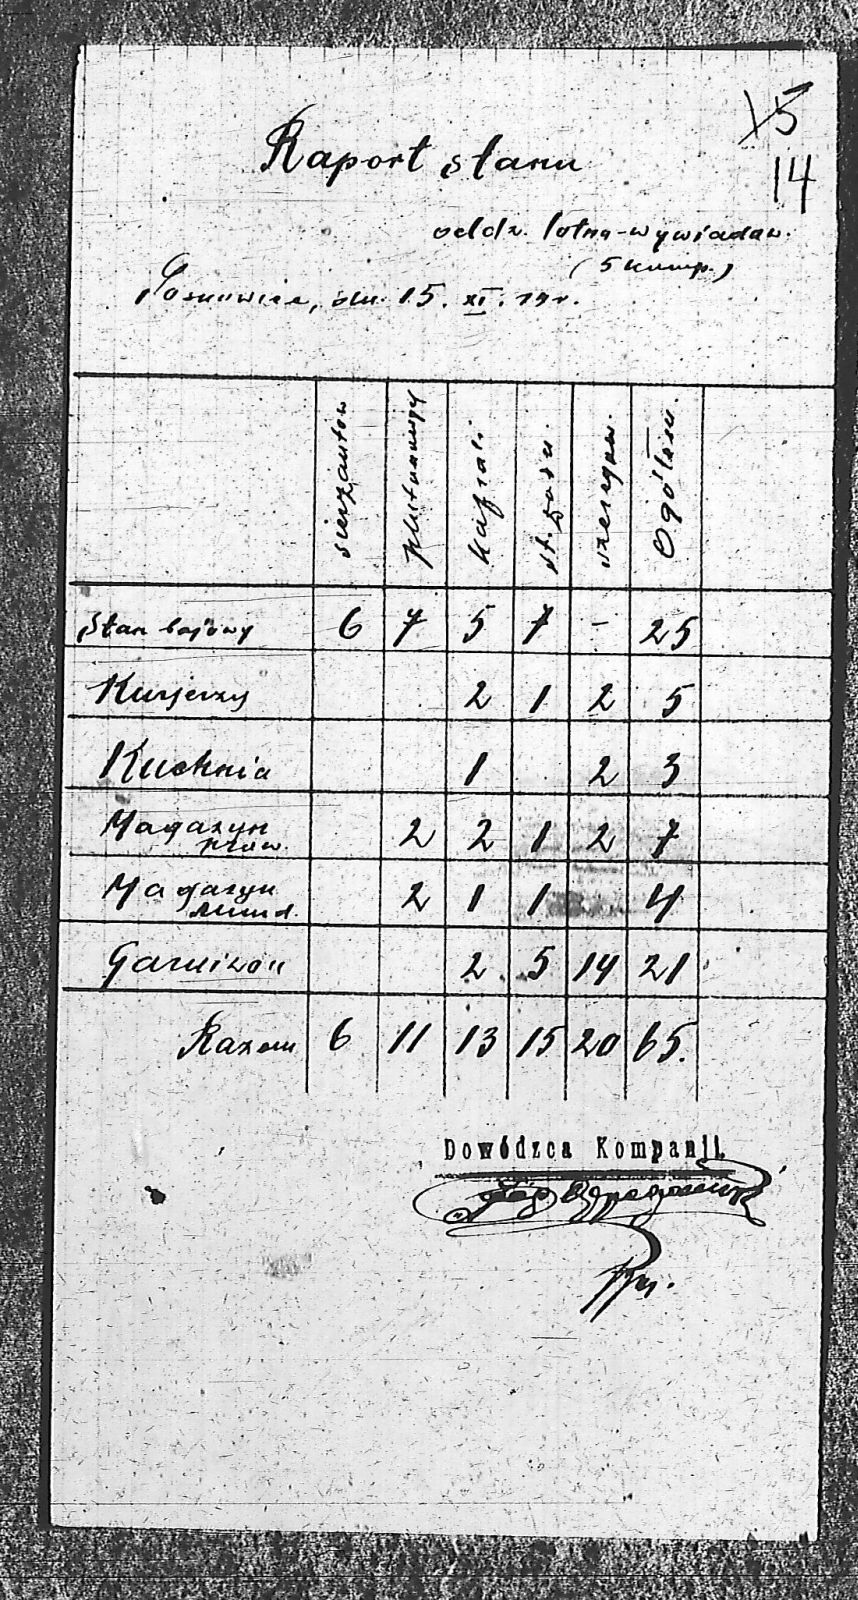 15
14
Raport stanu
oddz. lotno-wywiadow.
(5 komp.)
Sosnowiec, dn. 15. XI. 19 r.
sierżantów plutonowych kaprali st. żołn. szeregow. Ogółem.
Stan bojowy 6 7 5 7 - 25
Kurjerzy 2 1 2 5
Kuchnia 1 2 3
Magazyn prow. 2 2 1 2 7
Magazyn mund. 2 1 1 4
Garnizon 2 5 14 21
Razem 6 11 13 15 20 65.
Dowódca Kompanji.